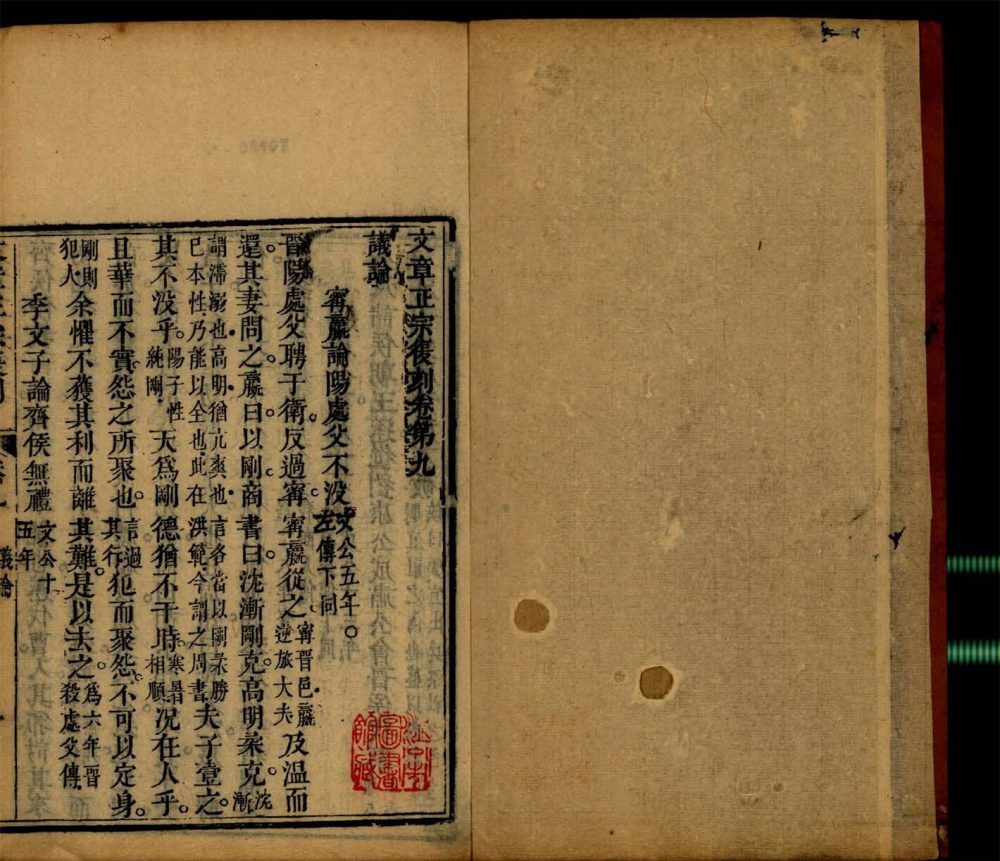 文章正宗復刻卷第九
議論
甯嬴論陽處父不没文公五年。左傳下同
晉陽處父聘于衛。反過甯。甯嬴從之。甯晉邑嬴逆旅大夫及温而
還。其妻問之。嬴曰。以剛。商書曰。沈漸剛克。高明柔克。沈漸
謂滯溺也高明猶亢爽也言各當以剛柔勝己本性乃能以全也此在洪範今謂之周書夫子壹之。
其不没乎。陽子性純剛天爲剛德。猶不干時。寒暑相順況在人乎。
且華而不實。怨之所聚也。言過其行犯而聚怨。不可以定身。
剛則犯人余懼不獲其利而離其難。是以去之。爲六年晉殺處父傳
季文子論齊侯無禮文公十五年
議論